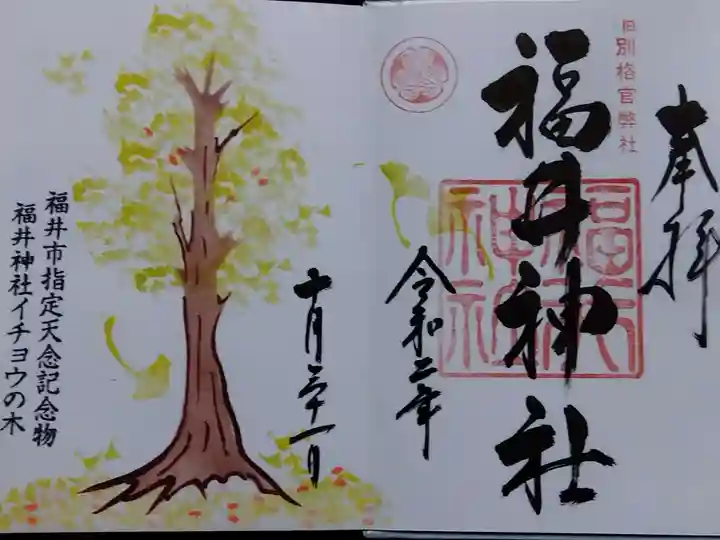 奉拝
旧別格官弊社
福井神社
福井神社
令和二年
十月二十一日
福井市指定天念記念物
福井神社イチョウの木